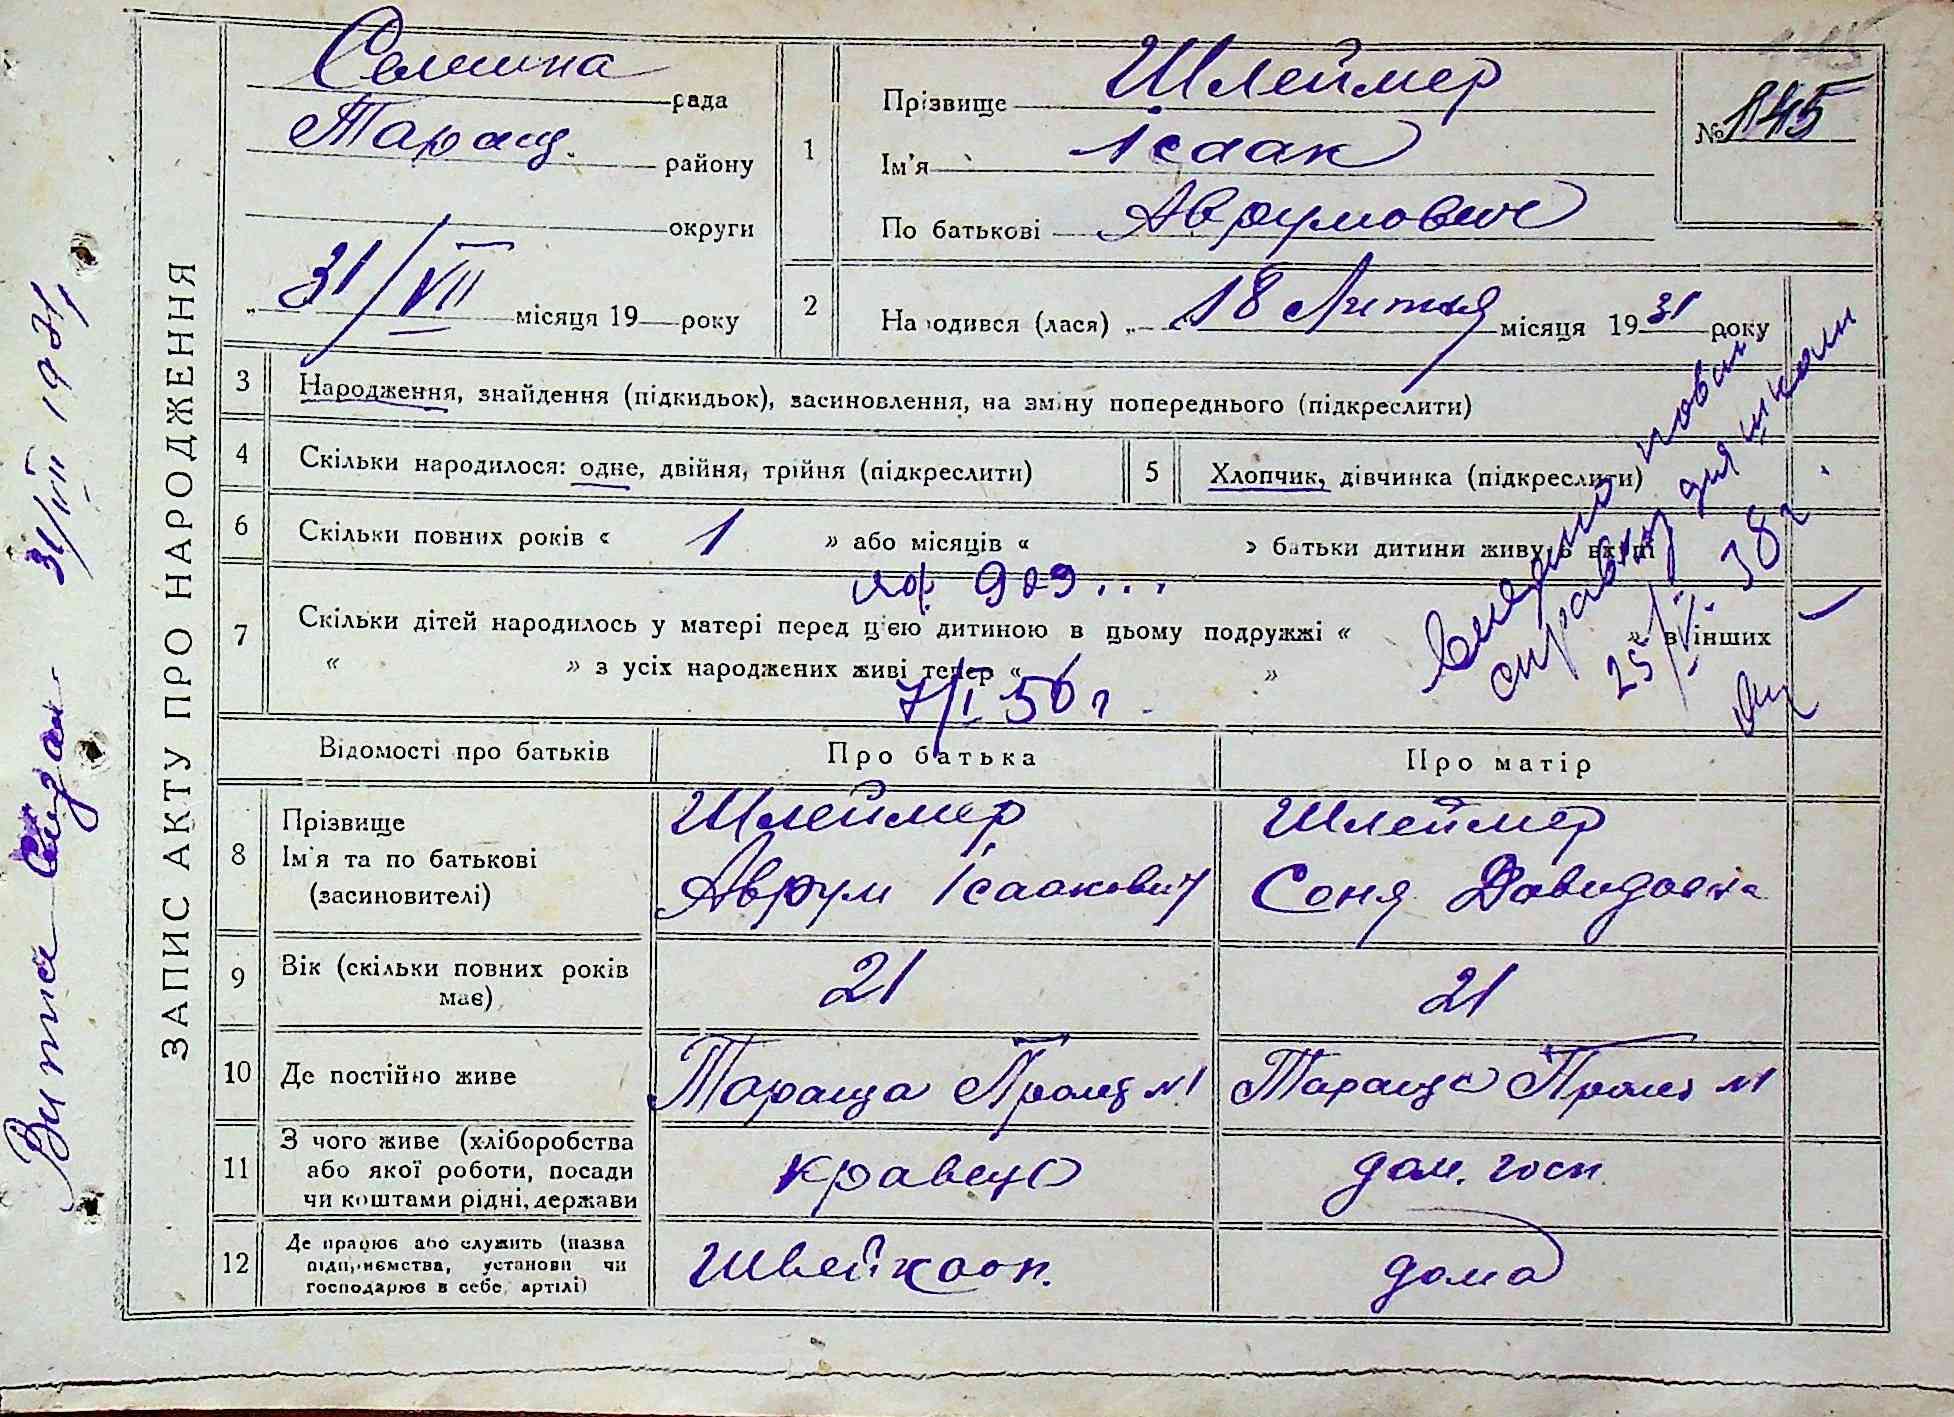 ЗАПИС АКТУ ПРО НАРОДЖЕННЯ
Селишна рада
Таращ. району
округи
„ 31/VII місяця 19 року
1
Прізвище Шлеймер
Ім'я Ісаак
По батькові Аврумович
№ 145
2
Народився (лася) „ 18 Липня місяця 1931 року
3
Народження, знайдення (підкидьок), засиновлення, на зміну попереднього (підкреслити)
4
Скільки народилося: одне, двійня, трійня (підкреслити)
5
Хлопчик, дівчинка (підкреслити)
6
Скільки повних років « 1 » або місяців « » батьки дитини живуть вкупі
909...
7
Скільки дітей народилось у матері перед цією дитиною в цьому подружжі « » в інших
« » з усіх народжених живі тепер « »
7/I 56 г
справку для школи
25/V. 38 г.
Відомості про батьків
Про батька
Про матір
8
Прізвище
Ім'я та по батькові
(засиновителі)
Шлеймер
Аврум Ісаакович
Шлеймер
Соня Давидовна
9
Вік (скільки повних років
має)
21
21
10
Де постійно живе
Тараща Пролет №1
Тараща Пролет №1
11
З чого живе (хліборобства
або якої роботи, посади
чи коштами рідні, держави
кравець
дом. госп.
12
Де працює або служить (назва
підприємства, установи чи
господарює в себе, артілі)
Швейкооп.
дома
31/VII 1931